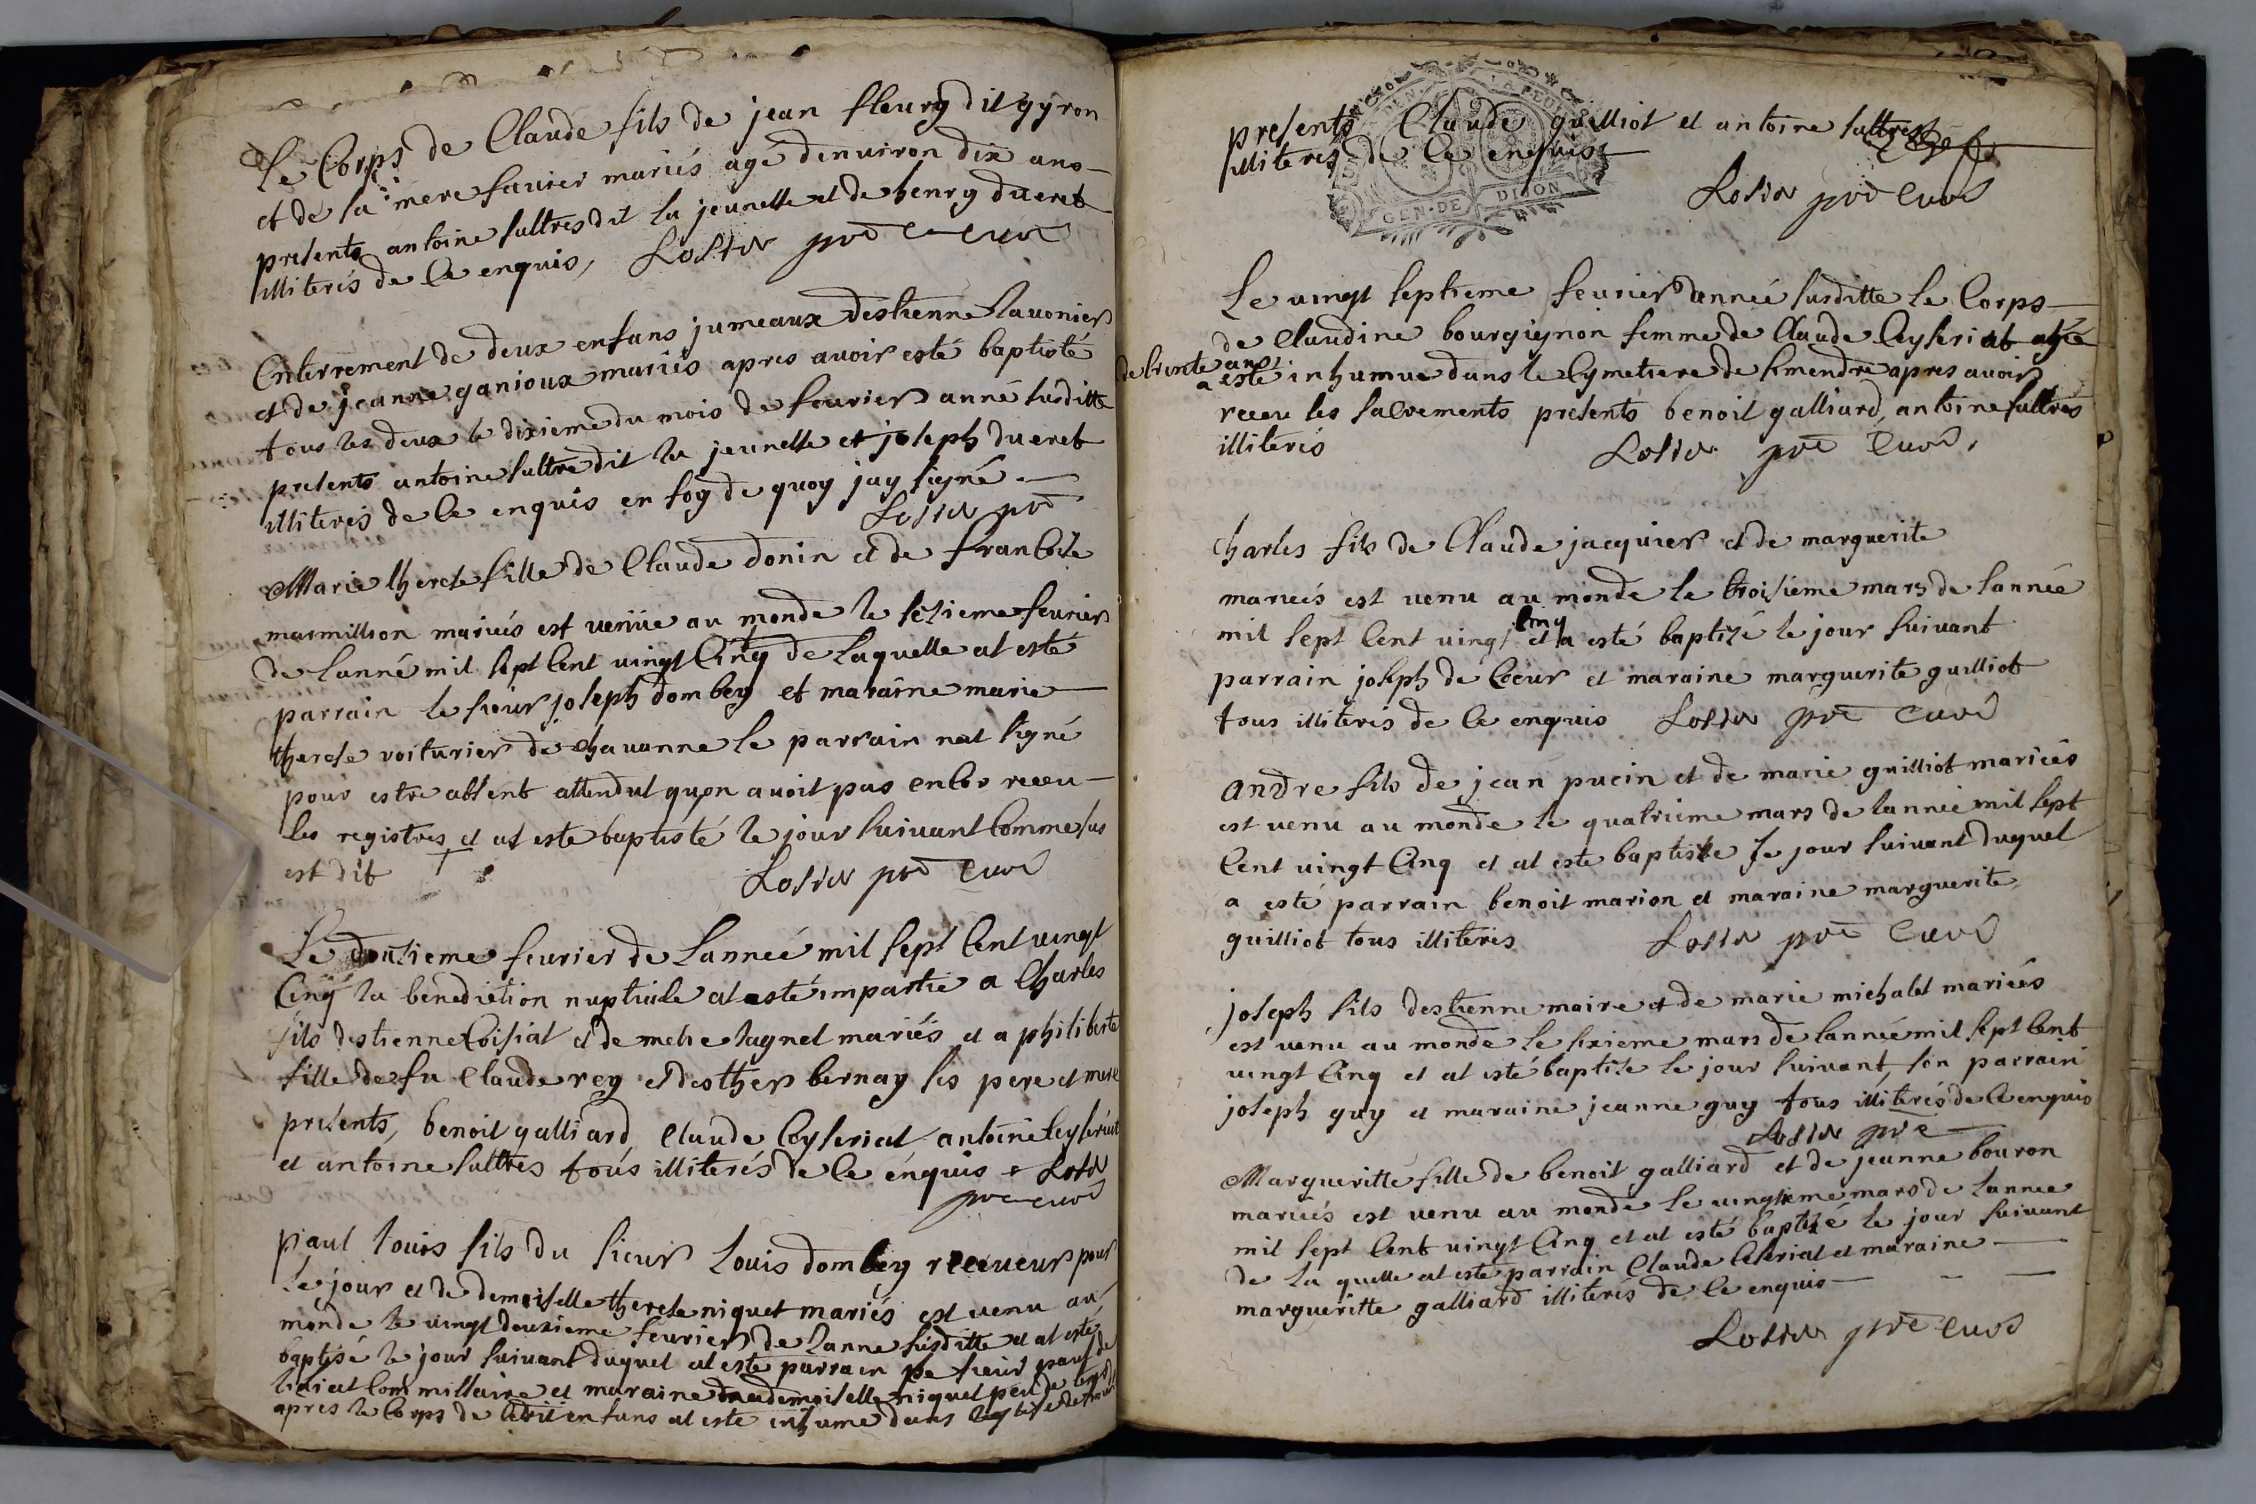 Le Corps de Claude fils de jean fleury dit gyron
et de sa mere favier mariés agé denviron dix ans
presents antoine sultres dit la jeunelle et de henry dueret
illiterés de ce enquis, Losier pre curé
Enterrement de deux enfans jumeaux destienne Lavonier
et de jeanne ganioux mariés apres avoir esté baptisté
tous les deux le dixieme du mois de fevrier anné susditte
presents antoine sultre dit la jeunelle et joseph dueret
illiterés de ce enquis en foy de quoy jay signé
Losier pre
Marie therese fille de Claude donin et de francoise
marmillion mariés est venüe au monde le sezieme fevrier
de lanné mil sept cent vingt cinq de laquelle at esté
parrain le sieur joseph dombey et maraine marie
therese voiturier de chavanne le parrain nat signé
pour estre absent attendut quon avoit pas encor receu
les registres et at este baptisté le jour suivant comme sus
est dit Losier pre curé
Le douzieme fevrier de Lanneé mil sept cent vingt
cinq la benediction nuptiale at esté impartie a Charles
fils destienne Coisiat et de mehe tagnet mariés et a philiberte
fille de fu Claude rey et desther bernay ses pere et mere
presents, benoit galliard Claude Ceyseriat antoine Ceyseriat
et antoine sultres tous illiterés de ce enquis Losier
pre curé
paul louis fils du sieur Louis dombey receveur pour
le jour et de demoiselle therese niquet mariés est venu au
monde le vingt deuxieme fevrier de lanne susditte et at esté
baptisé le jour suivant duquel at este parrain le sieur paul de
liviat commissaire et maraine mademoiselle niquet peu de temps
apres le corps de enfans at este inhume dans
presents Claude guilliot et antoine sultres
illiteres de ce enquis
GEN. DE DIJON
Losier pre curé
Le vingt septieme fevrier année susditte le Corps
de Claudine bourgignon femme de Claude Ceyseriat agée
de trente ans
a esté inhumue dans le Cymetiere de simendre apres avoir
receu les sacrements presents benoit galliard, antoine sultres
illiterés Losier pre curé,
Charles fils de Claude jacquier et de marguerite
mariés est venu au monde le troisieme mars de lannee
cinq
mil sept cent vingt et a esté baptizé le jour suivant
parrain joseph de Coeur et maraine marguerite guilliot
tous illiterés de ce enquis Losier pre curé
andre fils de jean pucin et de marie guilliot mariés
est venu au monde le quatrieme mars de lannee mil sept
cent vingt cinq et at este baptiste le jour suivant duquel
a esté parrain benoit marion et maraine marguerite
guilliot tous illiterés Losier pre curé
joseph fils destienne maire et de marie michalet mariés
est venu au monde le sixieme mars de lannéé mil sept cent
vingt cinq et at esté baptize le jour suivant, son parrain
joseph guy et maraine jeanne guy tous illiterés de ce enquis
Losier pre
Margueritte fille de benoit galliard et de jeanne bouron
mariés est venu au monde le vingtieme mars de lannee
mil sept cent vingt cinq et at esté baptizé le jour suivant
de la quelle at este parrain Claude Ceseriat et maraine
margueritte galliard illiterés de ce enquis
Losier pre curé